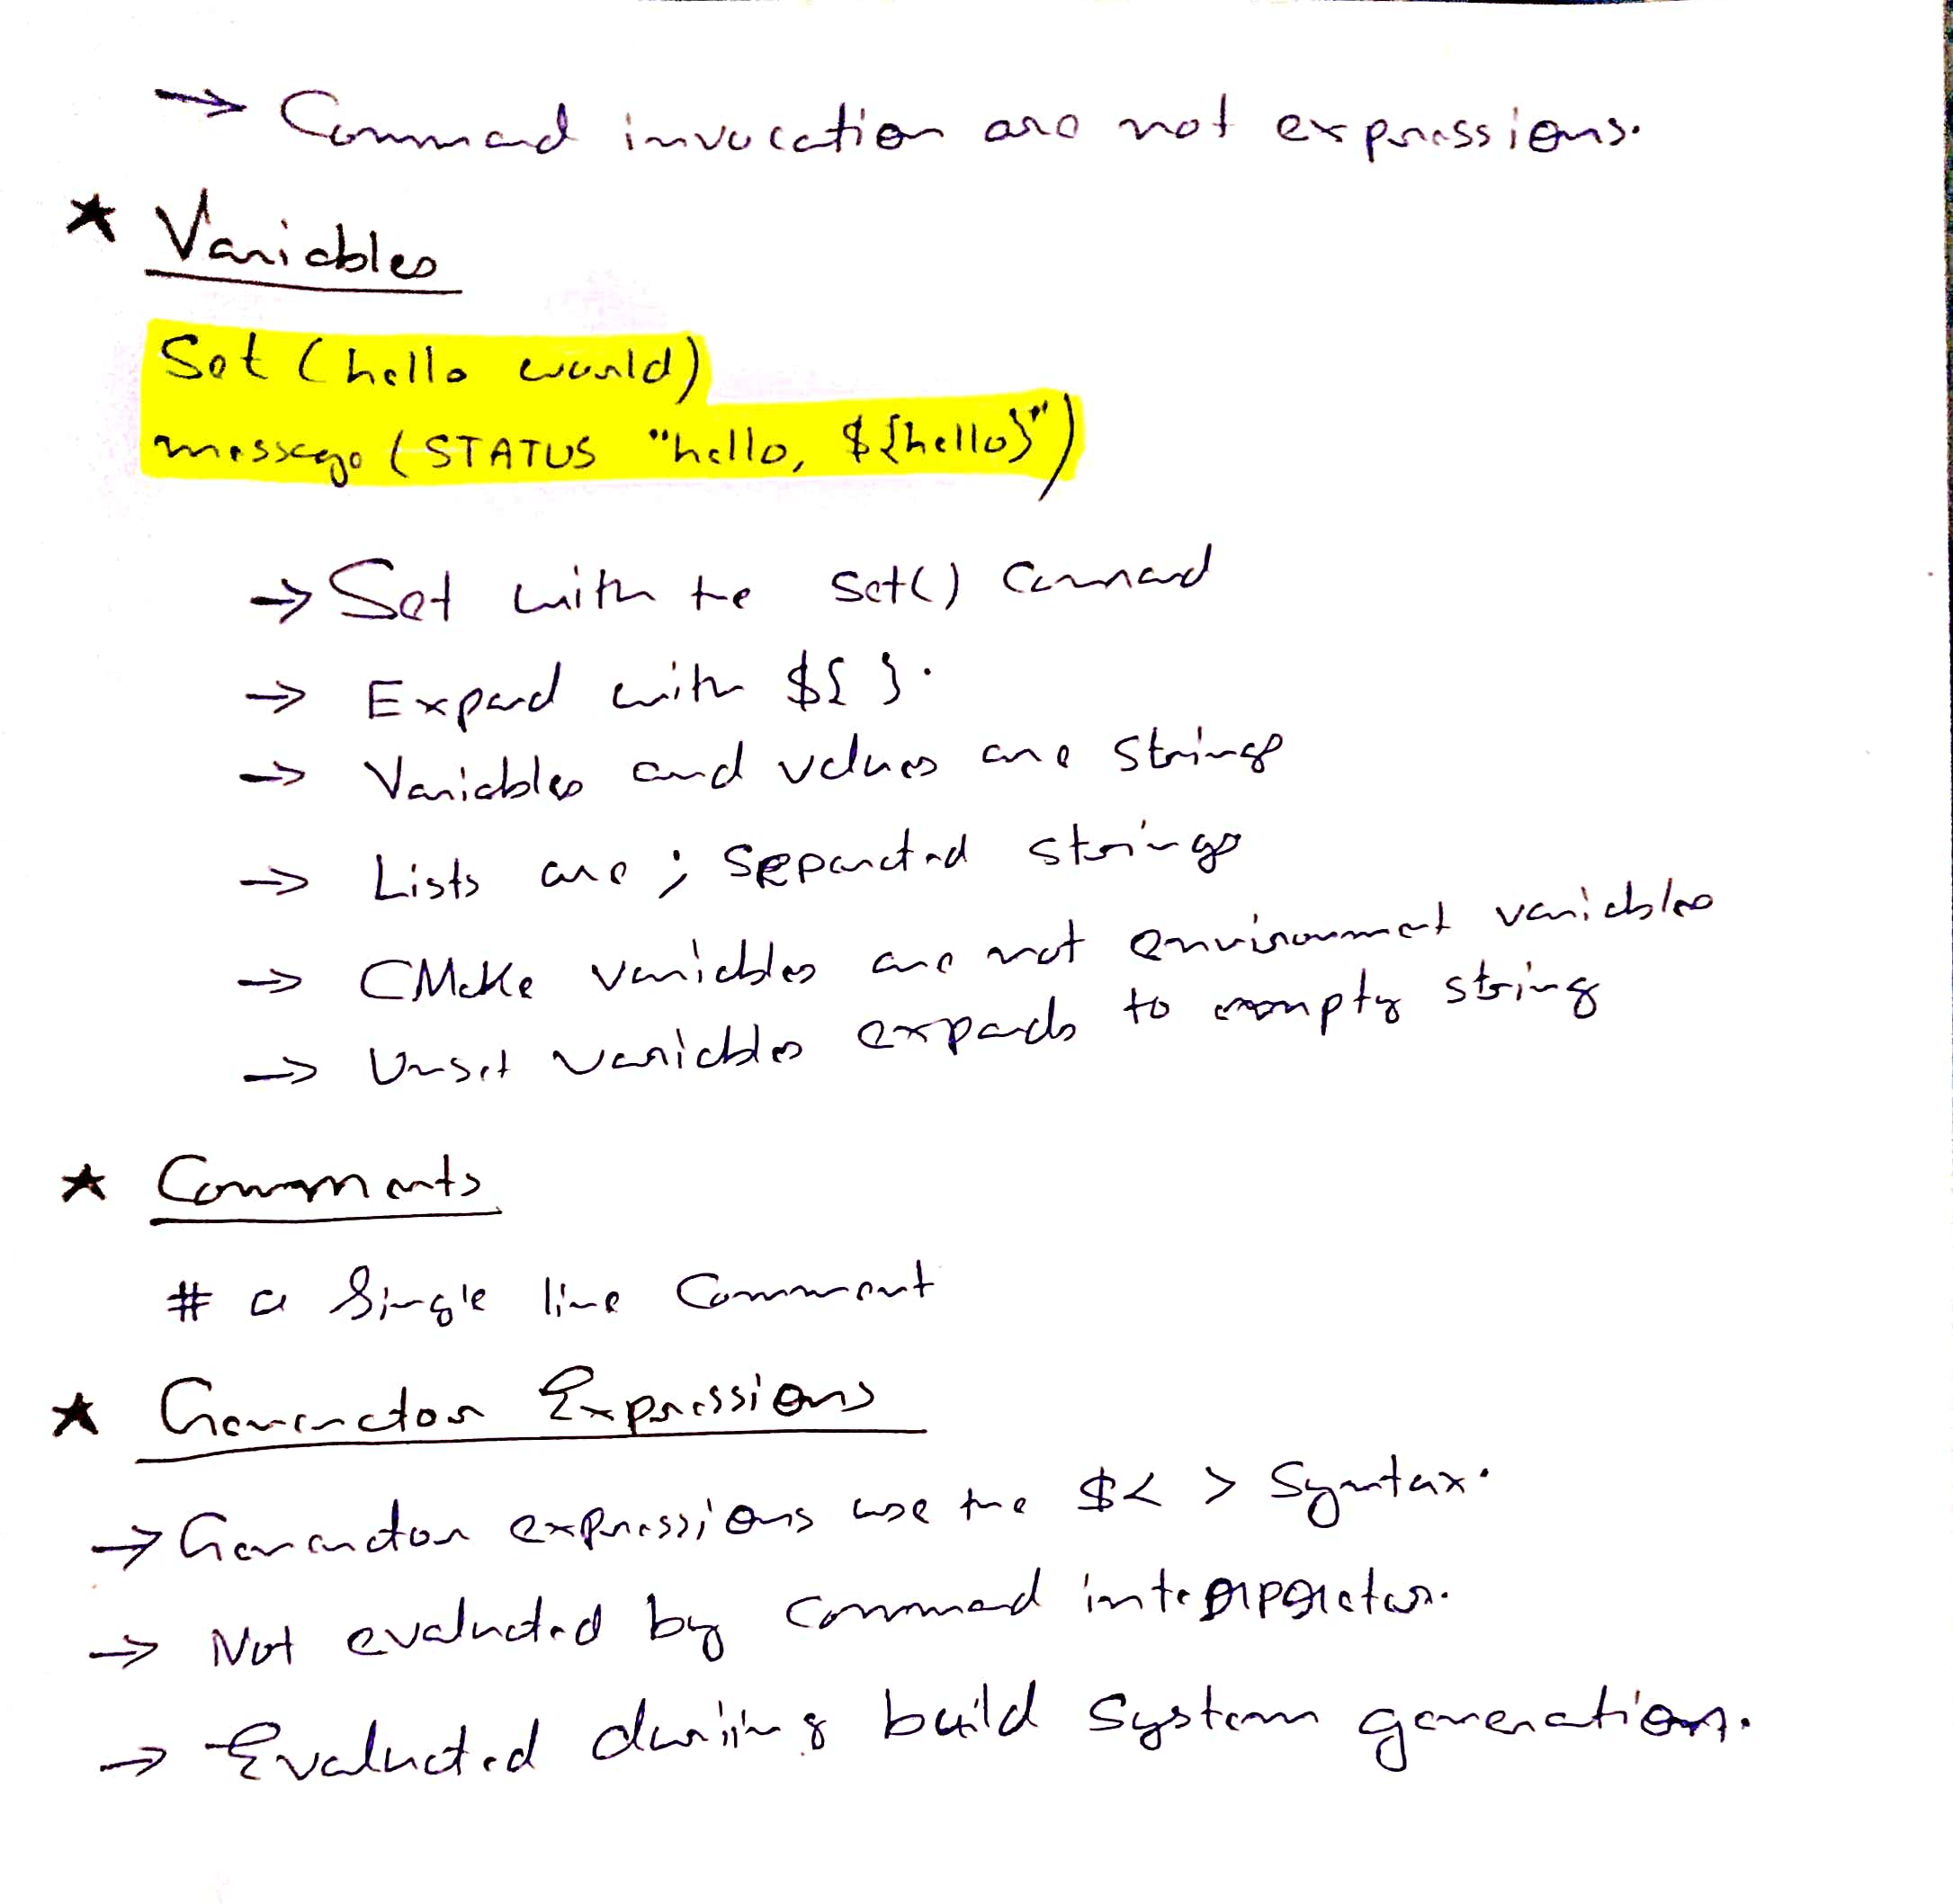 → Command invocation are not expressions.
★ Variables
Set (hello world)
message (STATUS "hello, ${hello}")
→ Set with the set() command
→ Expand with ${ }.
→ Variables and values are strings
→ Lists are ; separated strings
→ CMake variables are not environment variables
→ Unset variables expands to empty string
★ Comments
# a single line comment
★ Generator Expressions
→ Generator expressions use the $< > syntax.
→ Not evaluated by command interpreter.
→ Evaluated during build system generation.